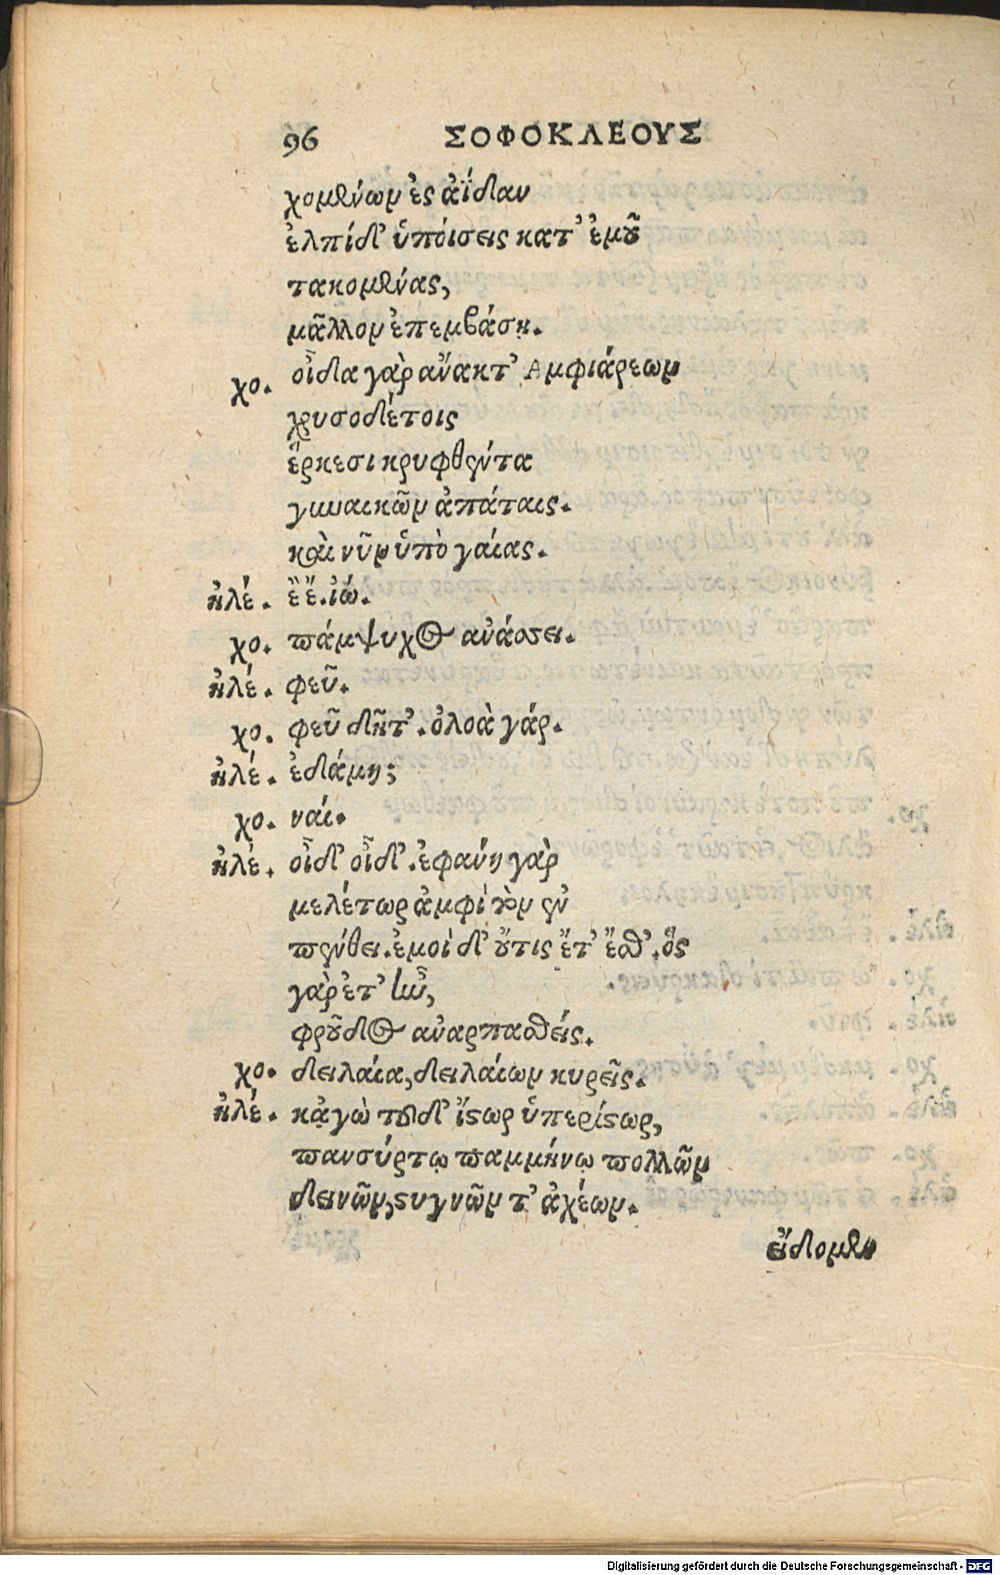 96 ΣΟΦΟΚΛΕΟΥΣ
χομένων ἐς ἀΐδαν
ἐλπίδ' ὑπόισεις κατ' ἐμοῦ
τακομένας,
μᾶλλον ἐπεμβάσῃ.
χο. οἶδα γὰρ ἄνακτ' Αμφιάρεων
χρυσοδέτοις
ἕρκεσι κρυφθέντα
γυναικῶν ἀπάταις.
καὶ νῦν ὑπὸ γαίας.
ἠλέ. ἒ ἔ. ἰώ.
χο. πάμψυχος ἀνάσσει.
ἠλέ. φεῦ.
χο. φεῦ δῆτ'. ὀλοὰ γάρ.
ἠλέ. ἐδάμη;
χο. ναί.
ἠλέ. οἶδ' οἶδ'. ἐφάνη γὰρ
μελέτωρ ἀμφὶ τὸν ἐν
πένθει. ἐμοὶ δ' οὔτις ἔτ' ἔσθ'. ὃς
γὰρ ἔτ' ἦν,
φροῦδος ἀναρπασθείς.
χο. δειλαία, δειλαίων κυρεῖς.
ἠλέ. κᾀγὼ τοῦδ' ἴστωρ ὑπερίστωρ,
πανσύρτῳ παμμήνῳ πολλῶν
δεινῶν, στυγνῶν τ' ἀχέων.
εἴδομεν
Digitalisierung gefördert durch die Deutsche Forschungsgemeinschaft - DFG